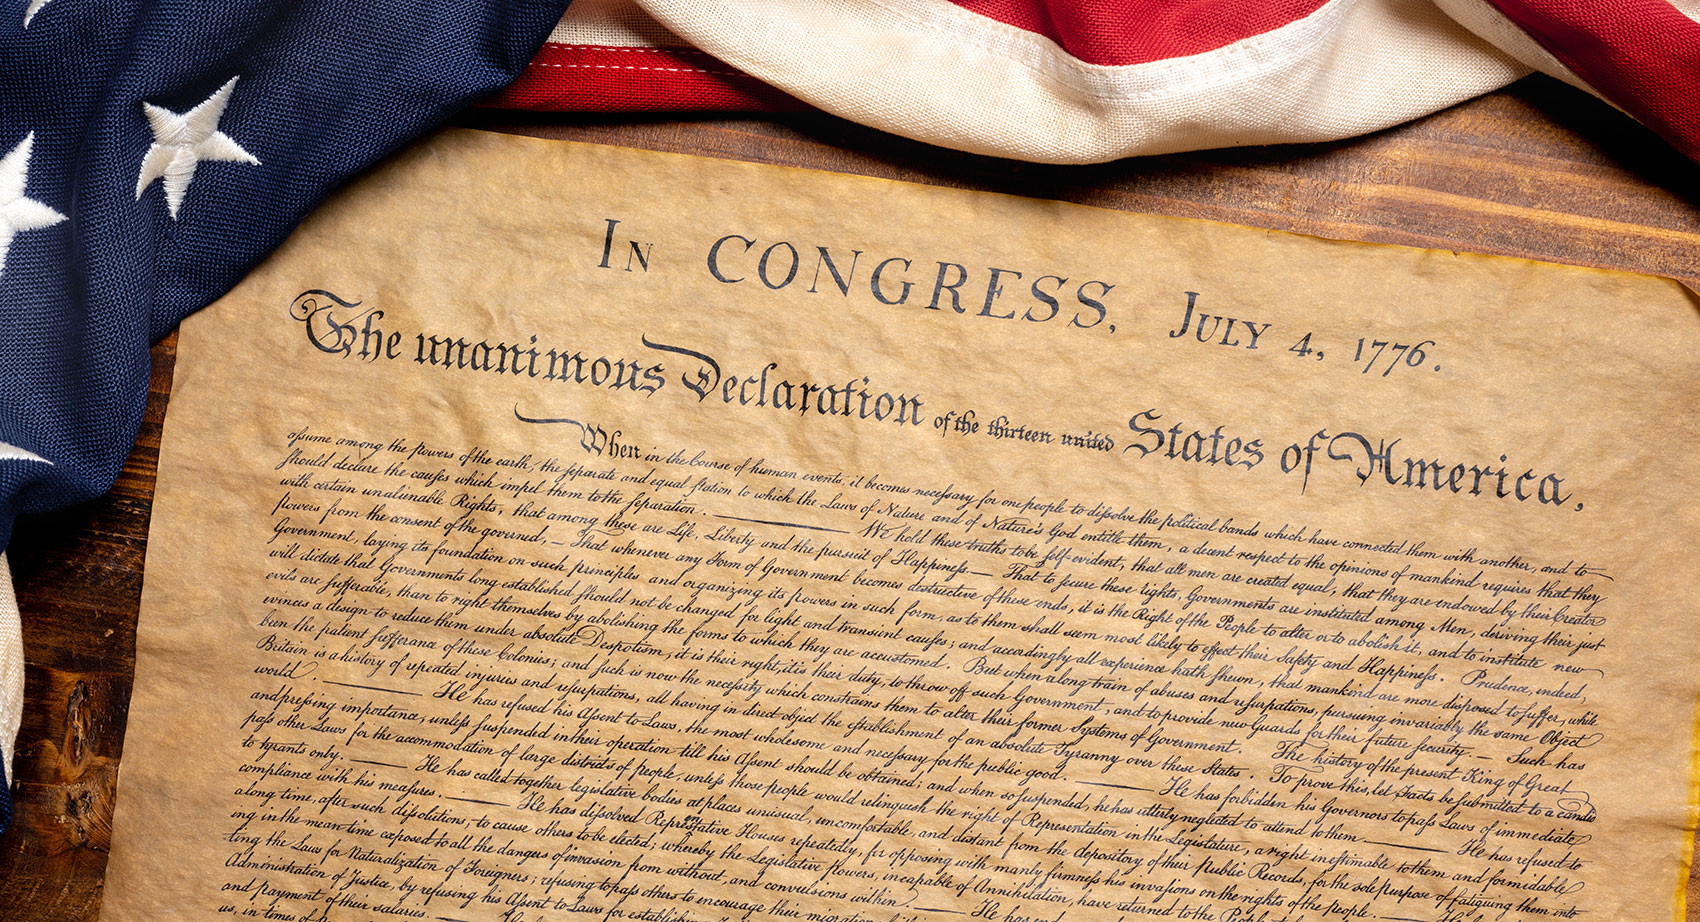 In CONGRESS, July 4, 1776.
The unanimous Declaration of the thirteen united States of America,
When in the Course of human events, it becomes necessary for one people to dissolve the political bands which have connected them with another, and to
assume among the powers of the earth, the separate and equal station to which the Laws of Nature and of Nature's God entitle them, a decent respect to the opinions of mankind requires that they
should declare the causes which impel them to the separation. — We hold these truths to be self-evident, that all men are created equal, that they are endowed by their Creator
with certain unalienable Rights, that among these are Life, Liberty and the pursuit of Happiness.— That to secure these rights, Governments are instituted among Men, deriving their just
powers from the consent of the governed, — That whenever any Form of Government becomes destructive of these ends, it is the Right of the People to alter or to abolish it, and to institute new
Government, laying its foundation on such principles and organizing its powers in such form, as to them shall seem most likely to effect their Safety and Happiness. Prudence, indeed,
will dictate that Governments long established should not be changed for light and transient causes; and accordingly all experience hath shewn, that mankind are more disposed to suffer, while
evils are sufferable, than to right themselves by abolishing the forms to which they are accustomed. But when a long train of abuses and usurpations, pursuing invariably the same Object
evinces a design to reduce them under absolute Despotism, it is their right, it is their duty, to throw off such Government, and to provide new Guards for their future security.— Such has
been the patient sufferance of these Colonies; and such is now the necessity which constrains them to alter their former Systems of Government. The history of the present King of Great
Britain is a history of repeated injuries and usurpations, all having in direct object the establishment of an absolute Tyranny over these States. To prove this, let Facts be submitted to a candid
world. — He has refused his Assent to Laws, the most wholesome and necessary for the public good. — He has forbidden his Governors to pass Laws of immediate
and pressing importance, unless suspended in their operation till his Assent should be obtained; and when so suspended, he has utterly neglected to attend to them. — He has refused to
pass other Laws for the accommodation of large districts of people, unless those people would relinquish the right of Representation in the Legislature, a right inestimable to them and formidable
to tyrants only. — He has called together legislative bodies at places unusual, uncomfortable, and distant from the depository of their public Records, for the sole purpose of fatiguing them into
compliance with his measures. — He has dissolved Representative Houses repeatedly, for opposing with manly firmness his invasions on the rights of the people. — He
along time, after such dissolutions, to cause others to be elected; whereby the Legislative powers, incapable of Annihilation, have returned to the
ing in the mean time exposed to all the dangers of invasion from without, and convulsions within. — He has end
ting the Laws for Naturalization of Foreigners; refusing to pass others to encourage their migration
Administration of Justice, by refusing his Assent to Laws for establishing
and payment of their salaries. —
us, in times of